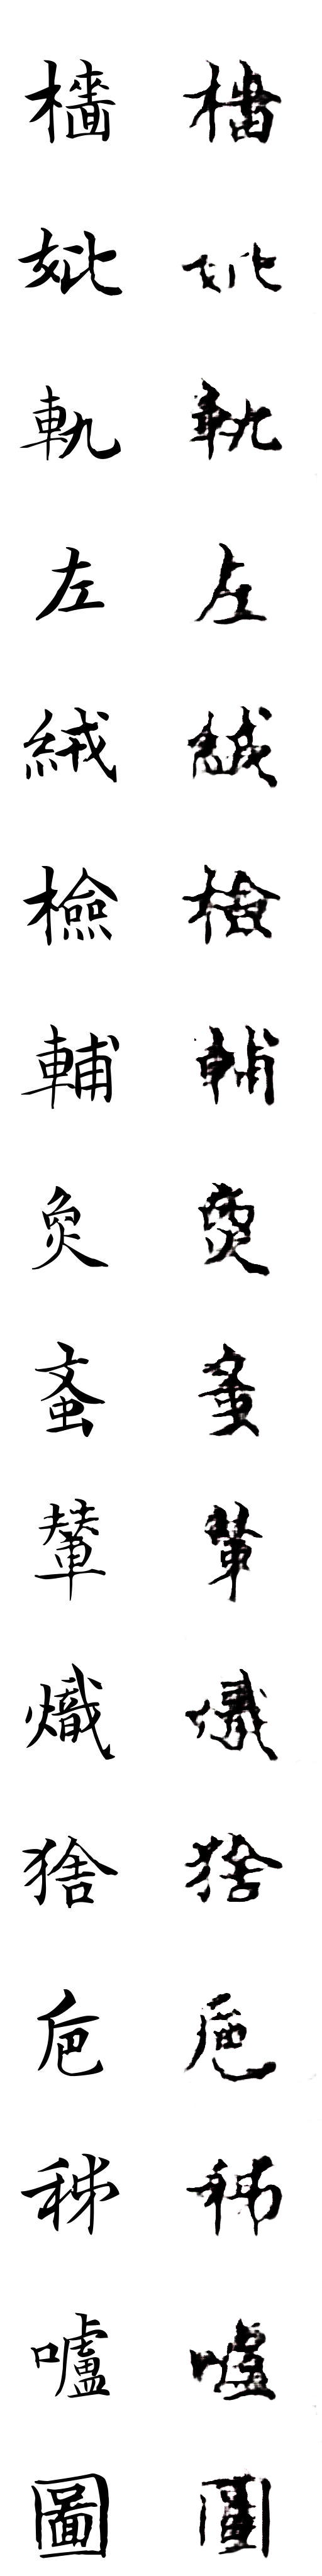 檣 檣
妣 妣
軌 軌
左 左
絨 絨
檢 檢
輔 輔
炱
蚉 蚉
輦 輦
熾 熾
猞 猞
巵
秭 秭
嚧 嚧
圖 圖